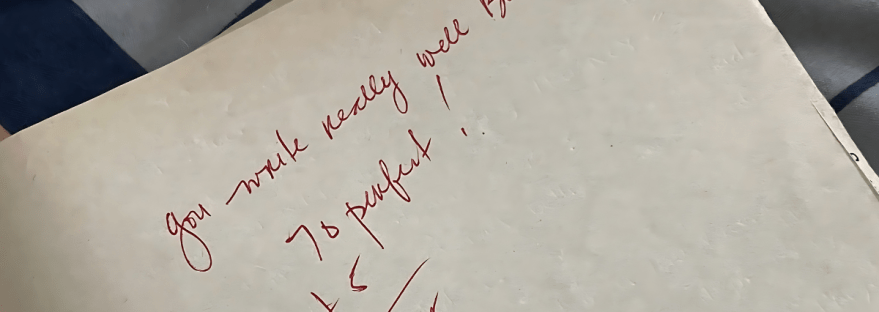 you write really well
To perfect!